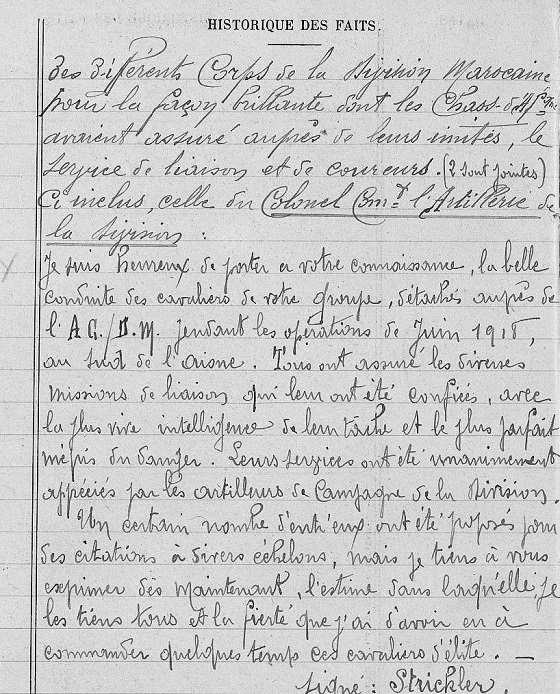 HISTORIQUE DES FAITS.
des différents Corps de la Division Marocaine
pour la façon brillante dont les Chass. d'Af.que
avaient assuré auprès de leurs unités, le
service de liaison et de coureurs. (2 sont jointes)
Ci inclus, celle du Colonel Cmdt l'Artillerie de
la Division :
Je suis heureux de porter à votre connaissance, la belle
conduite des cavaliers de votre groupe, détachés auprès de
l'A.C./D.M. pendant les opérations de Juin 1918,
au sud de l'aisne. Tous ont assuré les diverses
missions de liaison qui leur ont été confiées, avec
la plus vive intelligence de leur tâche et le plus parfait
mépris du danger. Leurs services ont été unanimement
appréciés par les artilleurs de Campagne de la Division.
Un certain nombre d'entr'eux ont été proposés pour
des citations à divers échelons, mais je tiens à vous
exprimer dès maintenant, l'estime dans laquelle, je
les tiens tous et la fierté que j'ai d'avoir eu à
commander quelques temps ces cavaliers d'élite. —
Signé : Strickler.